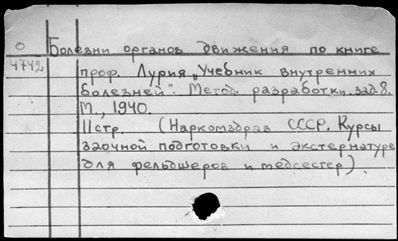 О
4742
Болезни органов движения по книге
проф. Лурия „Учебник внутренних
болезней". Метод. разработки. зад. 8.
М., 1940.
11стр. (Наркомздрав СССР. Курсы
заочной подготовки и экстернатуре
для фельдшеров и медсестер).